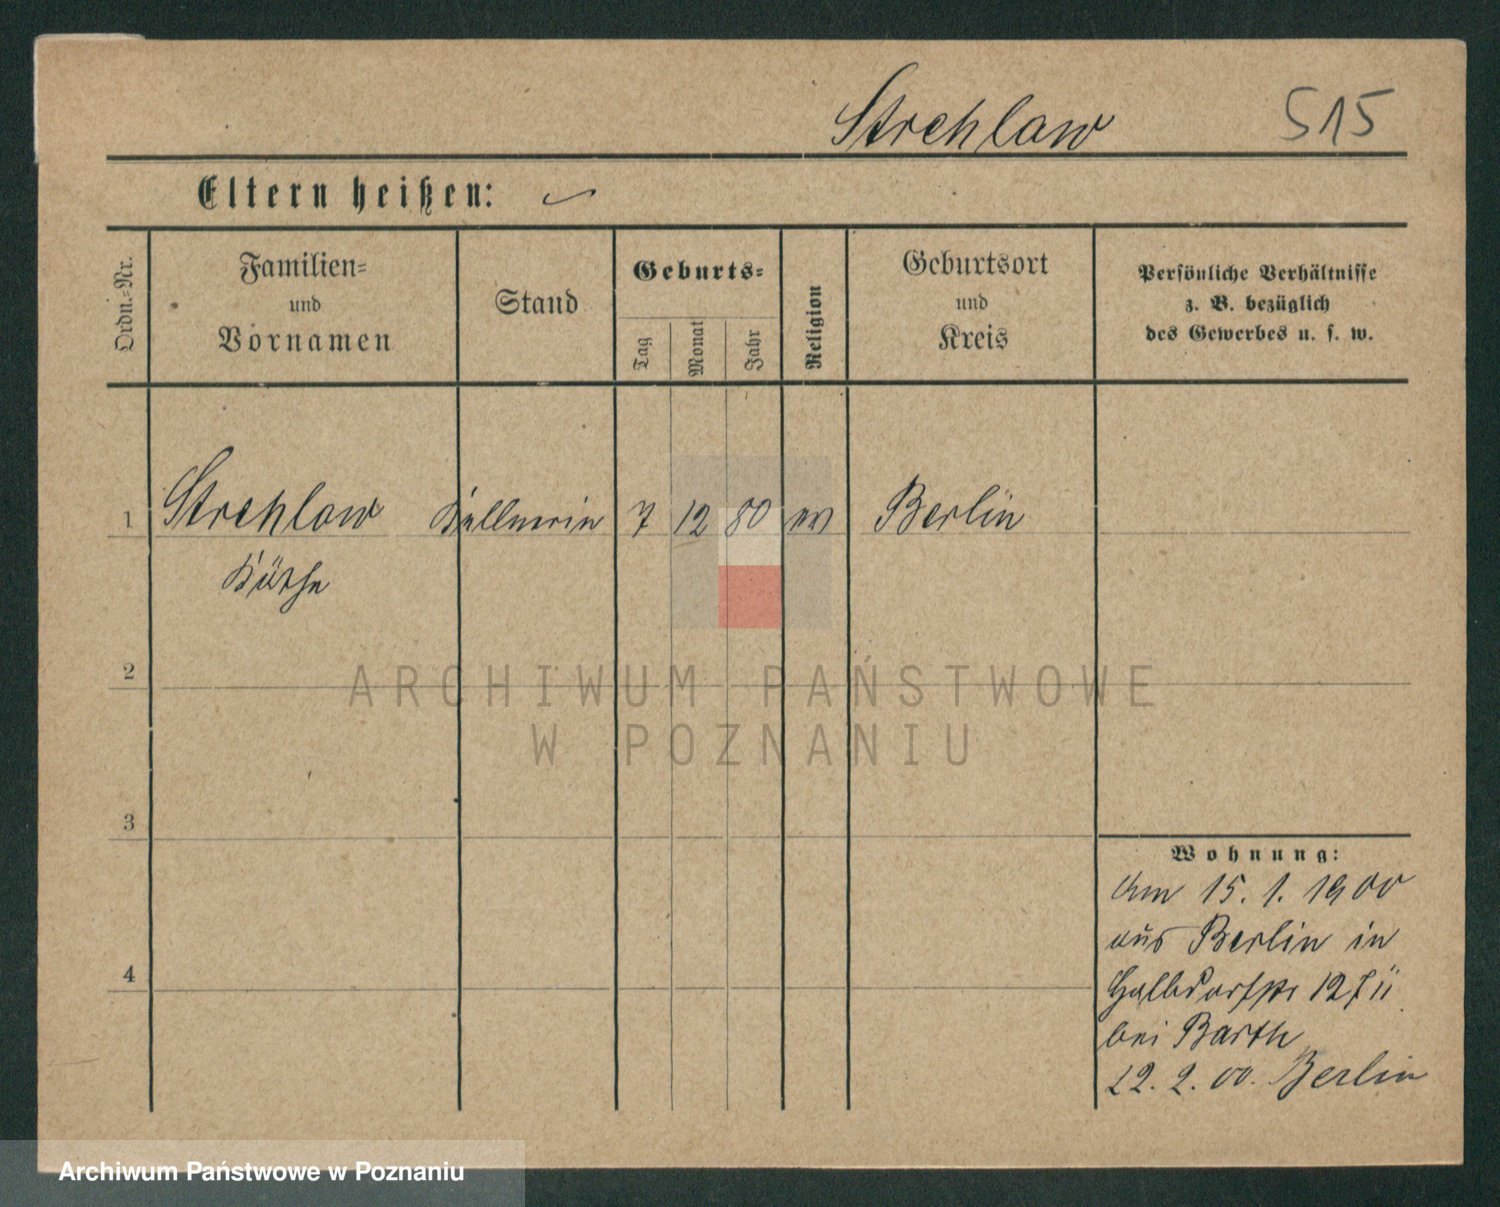 Strehlow 515
Eltern heißen:
Ordn.-Nr.
Familien-
und
Vornamen
Stand
Geburts-
Tag
Monat
Jahr
Religion
Geburtsort
und
Kreis
Persönliche Verhältnisse
z. B. bezüglich
des Gewerbes u. s. w.
1 Strehlow Kellnerin 7 12 80 ev Berlin
Käthe
2
3
4
Wohnung:
Am 15. 1. 1900
aus Berlin in
Halbdorfstr 12 II
bei Barth
22. 2. 00. Berlin
ARCHIWUM PAŃSTWOWE
W POZNANIU
Archiwum Państwowe w Poznaniu